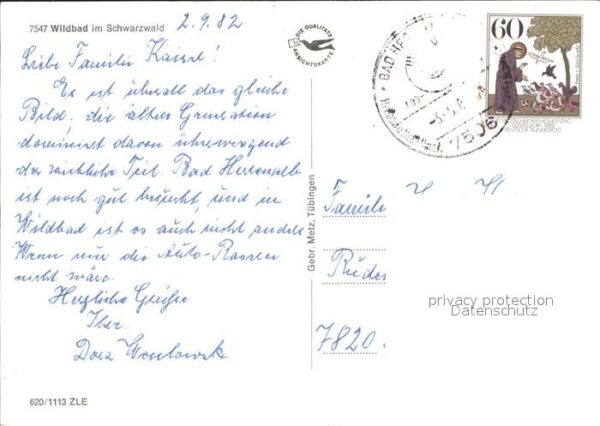 7547 Wildbad im Schwarzwald
2.9.82
DIE QUALITÄTS
ANSICHTSKARTE
60
BAD HE
7506
DEUTSCHE BUNDESPOST
Liebe Familie
Es ist überall das gleiche
Bild. die ältere Generation
dominiert davon überwiegend
der weibliche Teil. Bad Herrenalb
ist noch gut besucht, und in
Wildbad ist es auch nicht anders
Wenn nur die Auto-Raserei
nicht wäre.
Herzliche Grüße
Ihre
Dora
Gebr. Metz, Tübingen
Familie
7820
privacy protection
Datenschutz
620/1113 ZLE